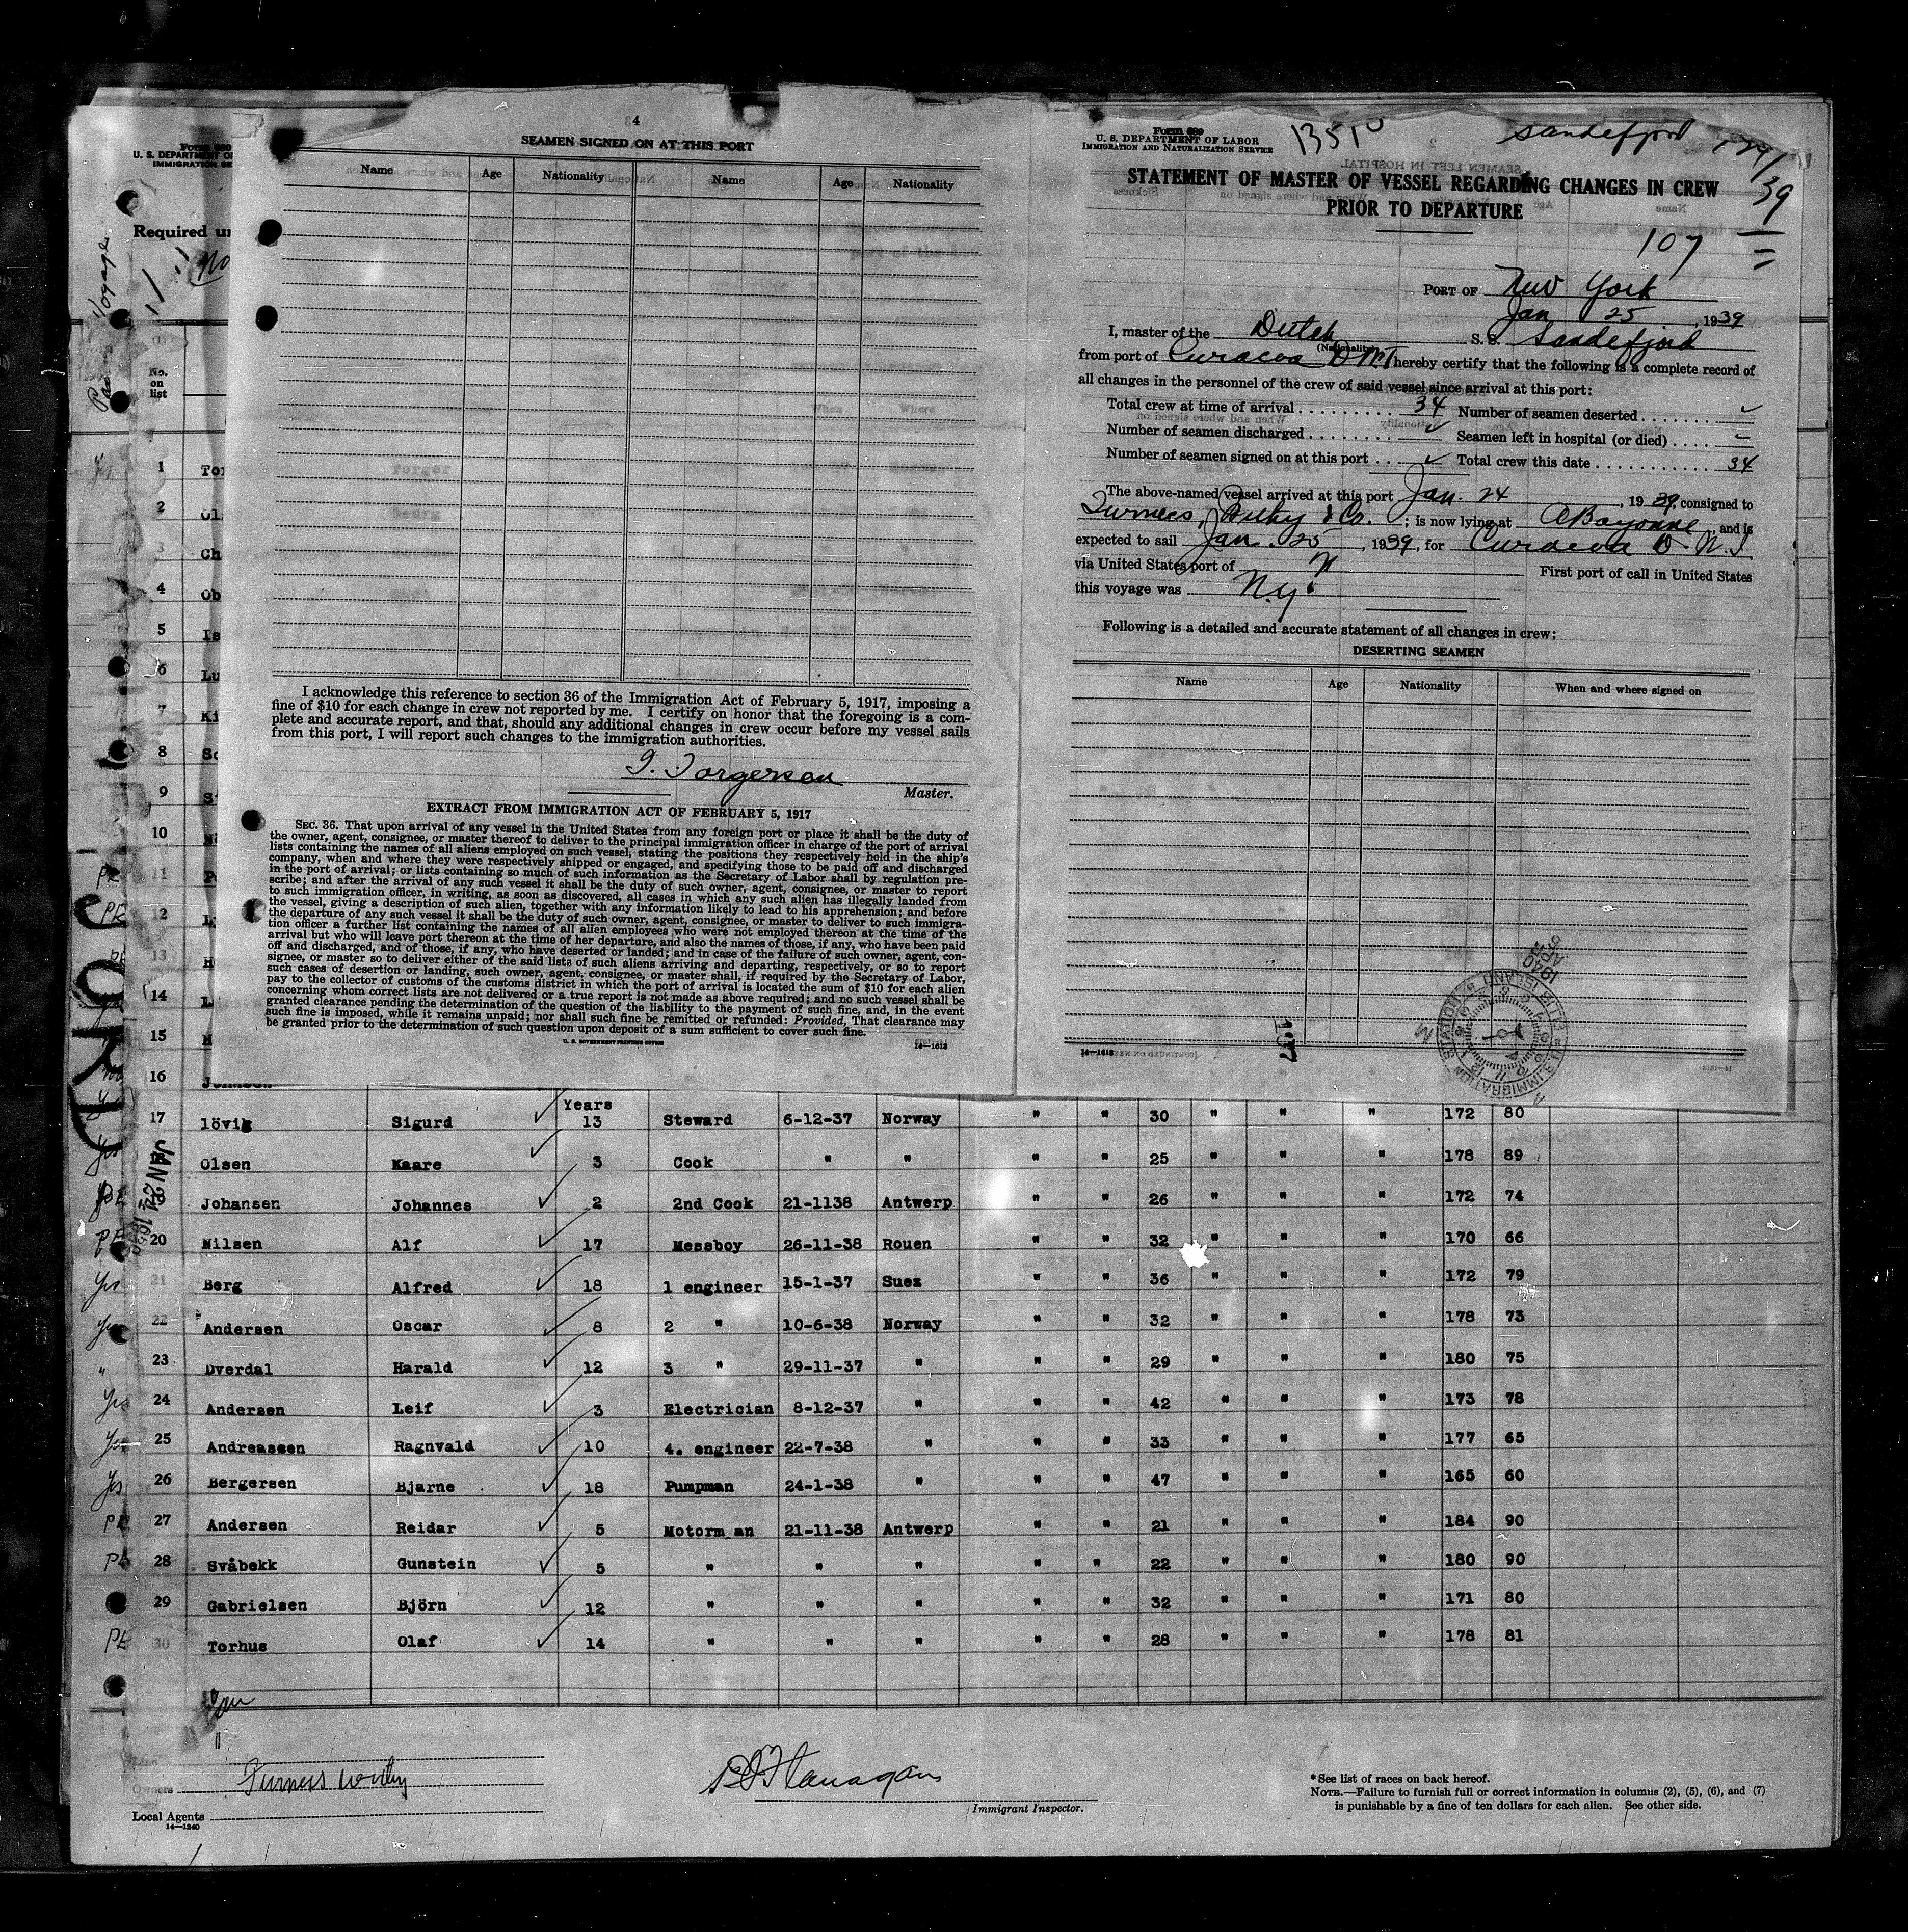 4
SEAMEN SIGNED ON AT THIS PORT
Name Age Nationality Name Age Nationality
I acknowledge this reference to section 36 of the Immigration Act of February 5, 1917, imposing a
fine of $10 for each change in crew not reported by me. I certify on honor that the foregoing is a com-
plete and accurate report, and that, should any additional changes in crew occur before my vessel sails
from this port, I will report such changes to the immigration authorities.
Master.
EXTRACT FROM IMMIGRATION ACT OF FEBRUARY 5, 1917
SEC. 36. That upon arrival of any vessel in the United States from any foreign port or place it shall be the duty of
the owner, agent, consignee, or master thereof to deliver to the principal immigration officer in charge of the port of arrival
lists containing the names of all aliens employed on such vessel, stating the positions they respectively hold in the ship's
company, when and where they were respectively shipped or engaged, and specifying those to be paid off and discharged
in the port of arrival; or lists containing so much of such information as the Secretary of Labor shall by regulation pre-
scribe; and after the arrival of any such vessel it shall be the duty of such owner, agent, consignee, or master to report
to such immigration officer, in writing, as soon as discovered, all cases in which any such alien has illegally landed from
the vessel, giving a description of such alien, together with any information likely to lead to his apprehension; and before
the departure of any such vessel it shall be the duty of such owner, agent, consignee, or master to deliver to such immigra-
tion officer a further list containing the names of all alien employees who were not employed thereon at the time of the
arrival but who will leave port thereon at the time of her departure, and also the names of those, if any, who have been paid
off and discharged, and of those, if any, who have deserted or landed; and in case of the failure of such owner, agent, con-
signee, or master so to deliver either of the said lists of such aliens arriving and departing, respectively, or so to report
such cases of desertion or landing, such owner, agent, consignee, or master shall, if required by the Secretary of Labor,
pay to the collector of customs of the customs district in which the port of arrival is located the sum of $10 for each alien
concerning whom correct lists are not delivered or a true report is not made as above required; and no such vessel shall be
granted clearance pending the determination of the question of the liability to the payment of such fine, and, in the event
such fine is imposed, while it remains unpaid; nor shall such fine be remitted or refunded: Provided, That clearance may
be granted prior to the determination of such question upon deposit of a sum sufficient to cover such fine.
U. S. GOVERNMENT PRINTING OFFICE 14—1613
Form 689
U. S. DEPARTMENT OF LABOR
IMMIGRATION AND NATURALIZATION SERVICE
Sandefjord
STATEMENT OF MASTER OF VESSEL REGARDING CHANGES IN CREW
PRIOR TO DEPARTURE
107
PORT OF New York
Jan 25, 1939
I, master of the Dutch S. S. Sandefjord
(Nationality)
from port of Curacoa hereby certify that the following is a complete record of
all changes in the personnel of the crew of said vessel since arrival at this port:
Total crew at time of arrival 34 Number of seamen deserted
Number of seamen discharged Seamen left in hospital (or died)
Number of seamen signed on at this port Total crew this date 34
The above-named vessel arrived at this port Jan. 24, 1939, consigned to
Furness, Withy & Co.; is now lying at Bayonne, and is
expected to sail Jan. 25, 1939, for Curacoa D. W. I.
via United States port of First port of call in United States
this voyage was N.Y.
Following is a detailed and accurate statement of all changes in crew:
DESERTING SEAMEN
Name Age Nationality When and where signed on
107
Required un
No. on list
1 Tor
2 Ol
3 Ch
4 Ob
5 Is
6 Lu
7 Ki
8
9
10
11
12
13
14
15
16
JAN 24 1939
Years
17 lövik Sigurd 13 Steward 6-12-37 Norway " " 30 " " " 172 80
Olsen Kaare 3 Cook " " " " 25 " " " 178 89
19 Johansen Johannes 2 2nd Cook 21-1138 Antwerp " " 26 " " " 172 74
20 Nilsen Alf 17 Messboy 26-11-38 Rouen " " 32 " " " 170 66
Yes 21 Berg Alfred 18 1 engineer 15-1-37 Suez " " 36 " " " 172 79
22 Andersen Oscar 8 2 " 10-6-38 Norway " " 32 " " " 178 73
" 23 Dverdal Harald 12 3 " 29-11-37 " " " 29 " " " 180 75
Yes 24 Andersen Leif 3 Electrician 8-12-37 " " " 42 " " " 173 78
Yes 25 Andreassen Ragnvald 10 4. engineer 22-7-38 " " " 33 " " " 177 65
Yes 26 Bergersen Bjarne 18 Pumpman 24-1-38 " " " 47 " " " 165 60
PE 27 Andersen Reidar 5 Motorm an 21-11-38 Antwerp " " 21 " " " 184 90
PE 28 Svåbekk Gunstein 5 " " " " " 22 " " " 180 90
29 Gabrielsen Björn 12 " " " " " 32 " " " 171 80
PE 30 Torhus Olaf 14 " " " " " 28 " " " 178 81
Line
Owners Furness Withy
Local Agents
14—1240
Immigrant Inspector.
* See list of races on back hereof.
NOTE.—Failure to furnish full or correct information in columns (2), (5), (6), and (7)
is punishable by a fine of ten dollars for each alien. See other side.